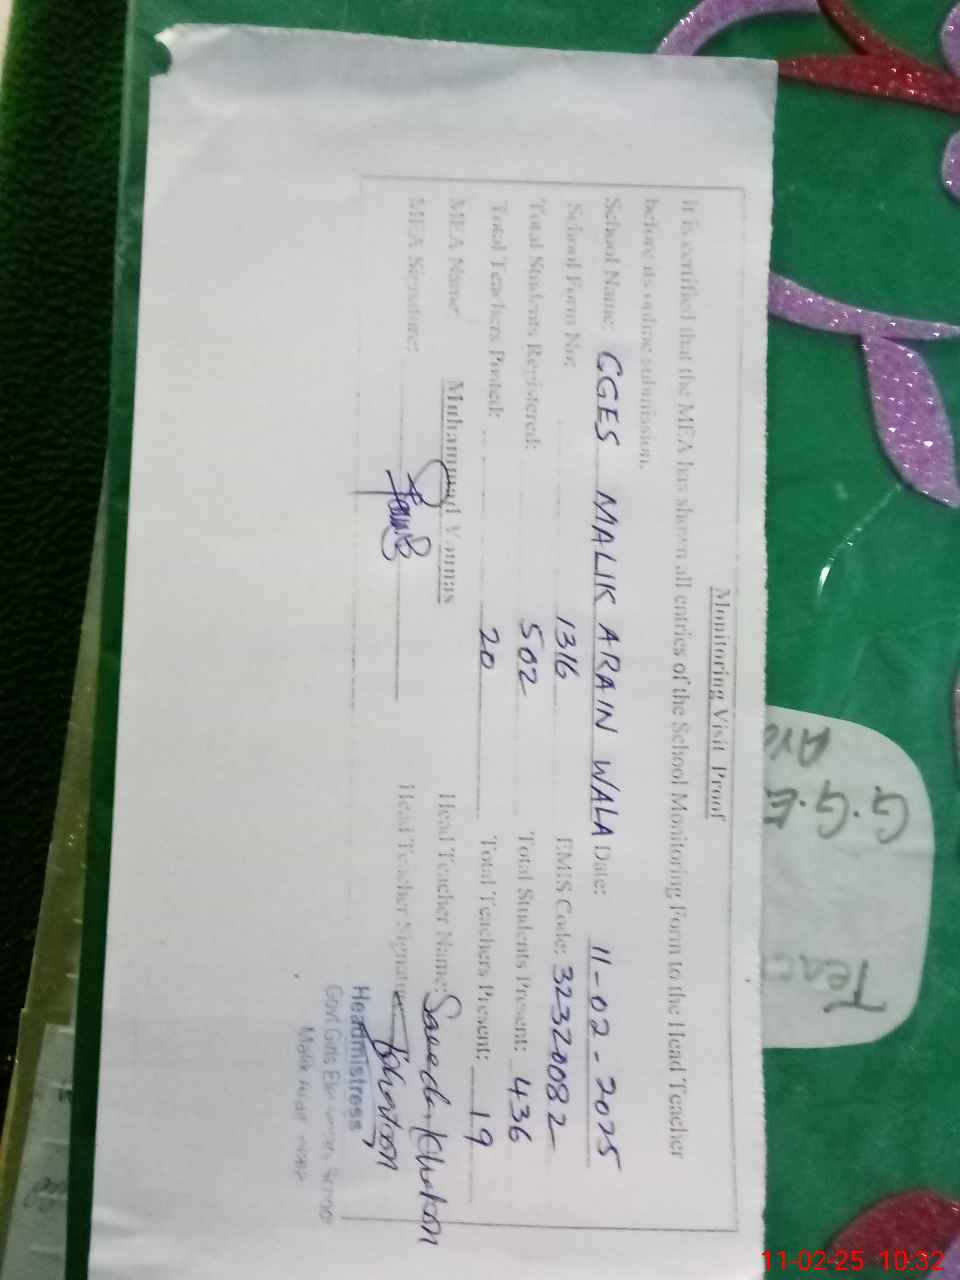 Monitoring Visit Proof
It is certified that the MEA has shown all entries of the School Monitoring Form to the Head Teacher
before its online submission.
School Name: GGES MALIK ARAIN WALA Date: 11-02-2025
School Form No: 1316 EMIS Code: 32320082
Total Students Registered: 502 Total Students Present: 436
Total Teachers Posted: 20 Total Teachers Present: 19
MEA Name: Muhammad Younas Head Teacher Name: Saeeda Khatoon
MEA Signature: Head Teacher Signature: Khatoon
Headmistress
Govt Girls Elementary School
Malik Arain
G.G.E
Ara
Teac
11-02-25 10:32